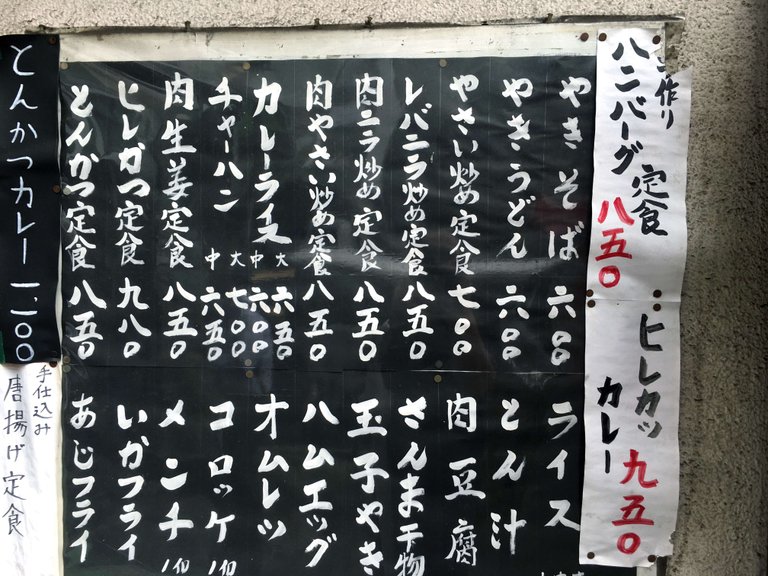 作り
ハンバーグ定食 八五〇
ヒレカツ
カレー 九五〇
やきそば 六〇〇
やきうどん 六〇〇
やさい炒め定食 七〇〇
レバニラ炒め定食 八五〇
肉ニラ炒め定食 八五〇
肉やさい炒め定食 八五〇
カレーライス 大 六五〇
中 六〇〇
チャーハン 大 七〇〇
中 六五〇
肉生姜定食 八五〇
ヒレかつ定食 九八〇
とんかつ定食 八五〇
ライス
とん汁
肉豆腐
さんま干物
玉子やき
ハムエッグ
オムレツ
コロッケ
メンチ
いかフライ
あじフライ
とんかつカレー 一、一〇〇
手仕込み
唐揚げ定食